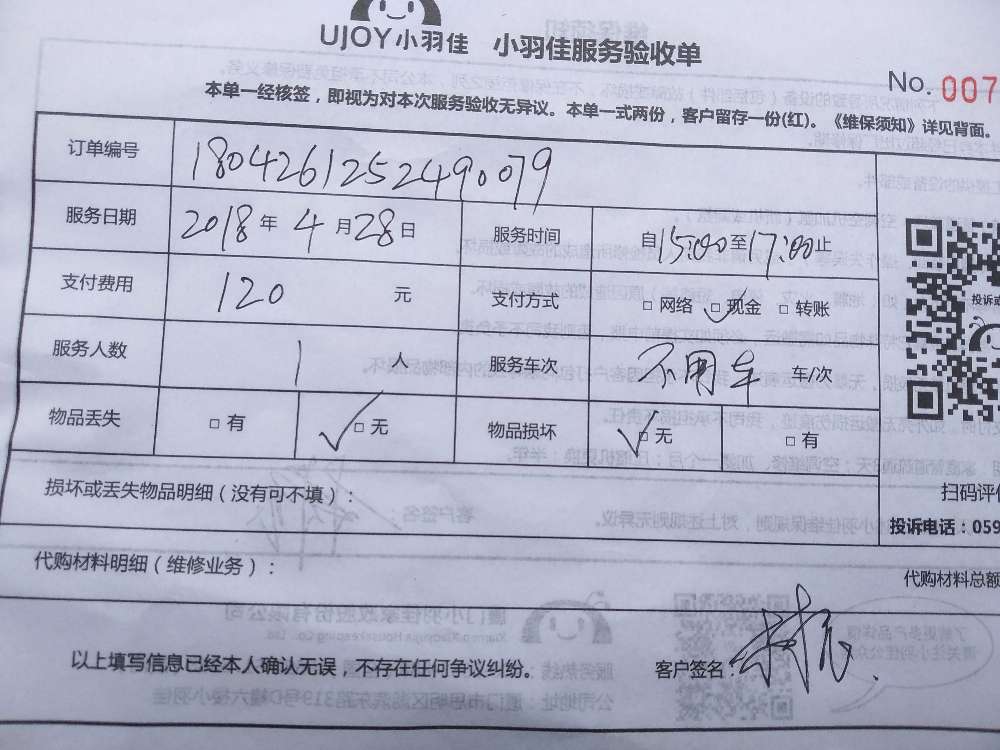 UJOY小羽佳 小羽佳服务验收单
No. 007
本单一经核签，即视为对本次服务验收无异议。本单一式两份，客户留存一份(红)。《维保须知》详见背面。
订单编号 18042612524900​79
服务日期 2018年4月28日 服务时间 自15:00至17:00止
支付费用 120 元 支付方式 □网络 □现金 □转账
投诉或
服务人数 1 人 服务车次 不用车 车/次
物品丢失 □有 □无 物品损坏 □无 □有
损坏或丢失物品明细（没有可不填）：
扫码评价
投诉电话：059
代购材料明细（维修业务）： 代购材料总额
以上填写信息已经本人确认无误，不存在任何争议纠纷。 客户签名：